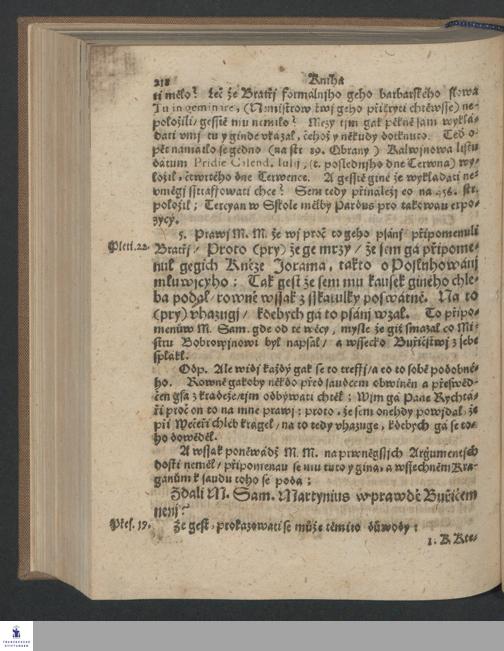 218 Kniha
ti mělo? Leč že Bratřj formalnjho geho barbarského slowa
Tu in geminare, (Nemistrow twj geho přičtyci chtěwsse) ne-
položili/ gessté mu nemilo? Mezy tjm gak pěkně sám wyklá-
dati vmj tu y ginde vkázal, čehož y někudy dotknuto. Teď o-
pět namátlo se gedno (na str. 89. Obrany) Kalwjnowa listu
datum Pridie Calend. Iulij, (t. poslednjho dne Čerwna) wy-
ložil, čtwrtého dne Čerwence. A gesstě giné že wykládati ne-
vmějj sstraffowati chce? Sem tedy přináležj co na 456. str.
položil: Tercyan w Sskole mělby Pardus pro takowau expo-
zycy.
5. Prawj M. M. že wj proč to geho psánj připomenuli
Pleti. 22. Bratřj/ Proto (pry) že ge mrzy/ že sem gá připome-
nul gegich Kněze Jorama, takto o Posluhowánj
mluwjcyho: Tak gest že sem mu kausek giného chle-
ba podal/ rowně wssak z sskatulky poswátné. Na to
(pry) vhazugj/ kdebych gá to psánj wzal. To připo-
menůw M. Sam. gde od té wěcy, mysle že giž smazal co Mi-
stru Bobrowjnowi byl napsal/ a wssecko Buřičstwj z sebe
spláкl.
Odp. Ale widj každý gak se to treffj/ a co to sobě podobné-
ho. Rowně gakoby někdo před saudcem obwiněn a přeswěd-
čen gsa z krádeže/ tjm odbýwati chtěl: Wjm gá Pane Rychtá-
ři proč on to na mne prawj: proto, že sem onehdy powjdal, že
při Wečeři chléb krágel/ na to tedy vhazuge, kdebych gá se to-
ho dowěděl.
A wssak poněwádž M. M. na prwněgssjch Argumentjch
dosti neměl/ připomenau se mu tuto y giná, a wssechněm Kra-
ganům k saudu toho se podá:
Zdali M. Sam. Martynius wprawdě Buřičem
nenj?
Přes. 19. Že gest, prokazowati se může těmito důwody:
1. Z Kte-